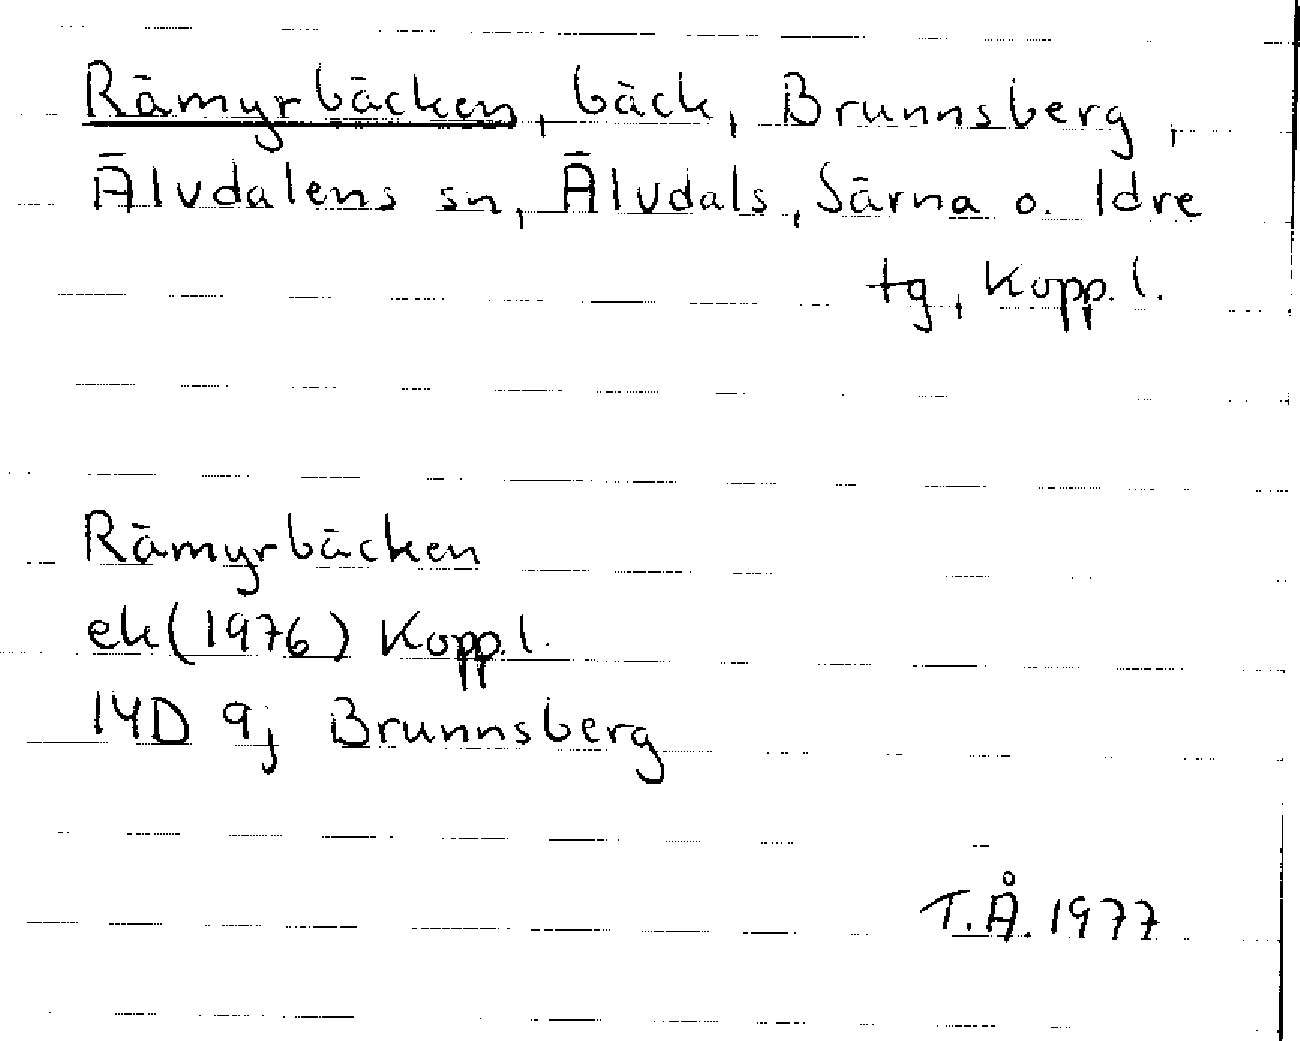 Rämyrbäcken, bäck, Brunnsberg,
Älvdalens sn, Älvdals, Särna o. Idre
tg, Kopp. l.
Rämyrbäcken
ek (1976) Kopp. l.
14D 9j Brunnsberg
T.Å. 1977